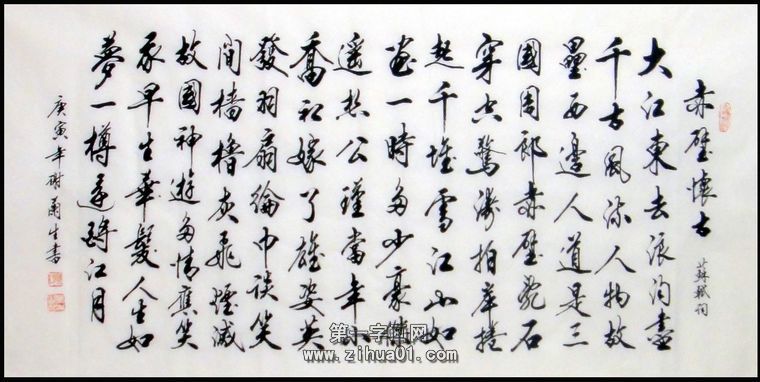 赤壁懷古
蘇軾詞
大江東去浪淘盡
千古風流人物故
壘西邊人道是三
國周郎赤壁亂石
穿空驚濤拍岸捲
起千堆雪江山如
畫一時多少豪傑
遥想公瑾當年小
喬初嫁了雄姿英
發羽扇綸巾談笑
間檣櫓灰飛煙滅
故國神遊多情應笑
我早生華髮人生如
夢一樽還酹江月
庚寅年謝爾生書
第一字畫网
www.zihua01.com